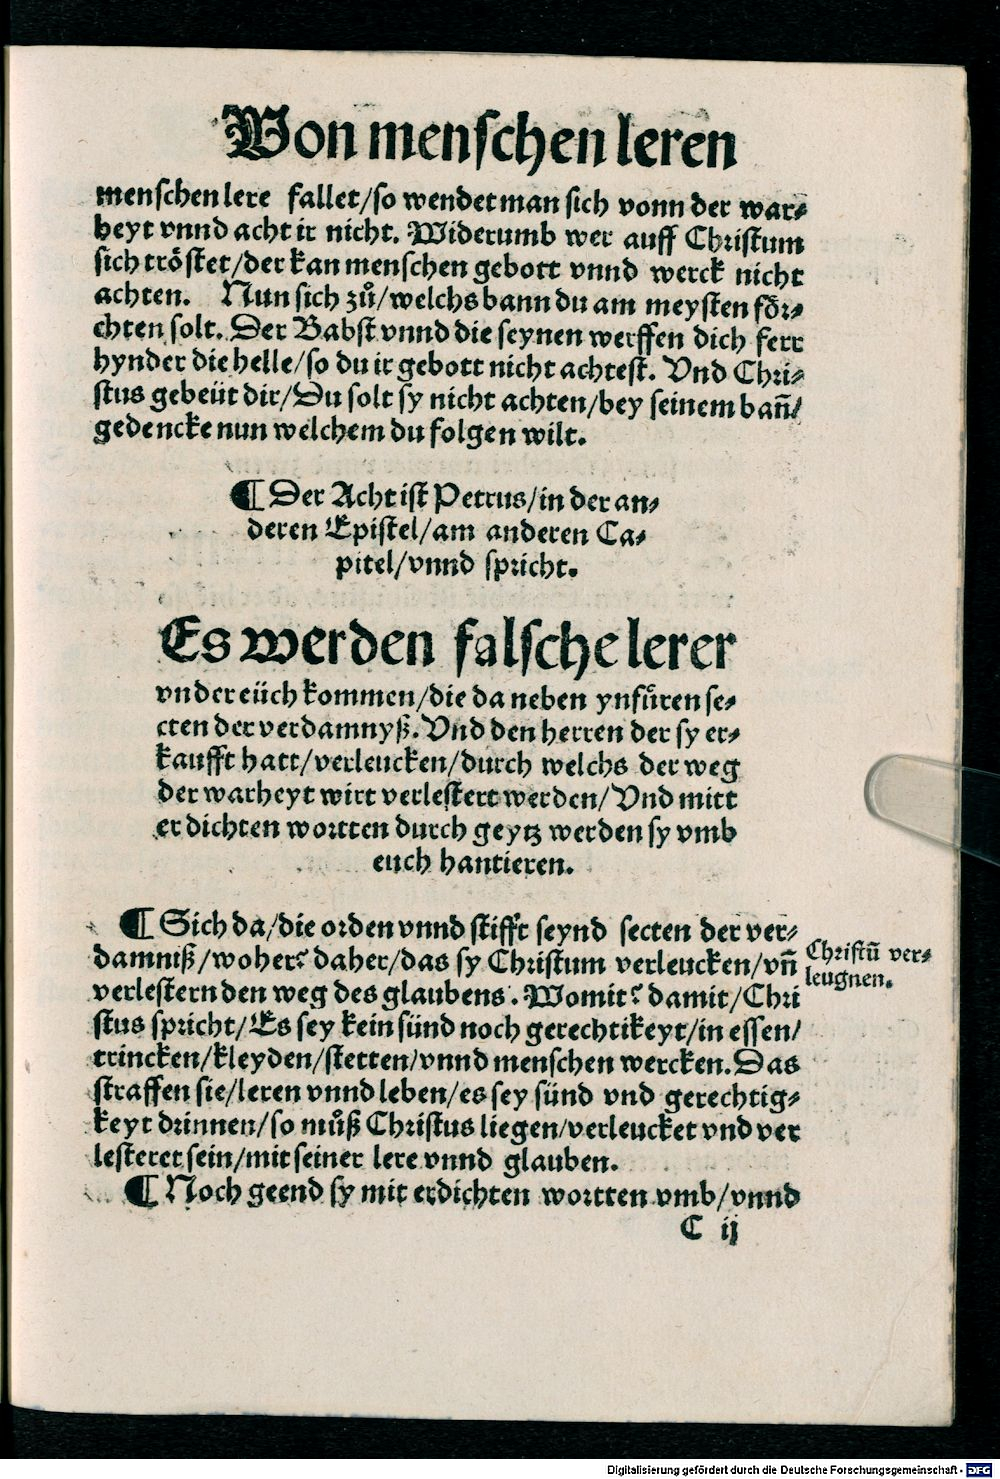 Von menschen leren
menschen lere fallet/so wendet man sich vonn der war⸗
heyt vnnd acht ir nicht. Widerumb wer auff Christum
sich tröstet/der kan menschen gebott vnnd werck nicht
achten. Nun sich zů/welchs bann du am meysten för⸗
chten solt. Der Babst vnnd die seynen werffen dich ferr
hynder die helle/so du ir gebott nicht achtest. Vnd Chri⸗
stus gebeüt dir/Du solt sy nicht achten/bey seinem bañ/
gedencke nun welchem du folgen wilt.
¶ Der Acht ist Petrus/in der an⸗
deren Epistel/am anderen Ca⸗
pitel/vnnd spricht.
Es werden falsche lerer
vnder eüch kommen/die da neben ynfüren se⸗
cten der verdamnyß. Vnd den herren der sy er⸗
kaufft hatt/verleucken/durch welchs der weg
der warheyt wirt verlestert werden/Vnd mitt
er dichten wortten durch geytz werden sy vmb
euch hantieren.
¶ Sich da/die orden vnnd stifft seynd secten der ver⸗
damniß/woher? daher/das sy Christum verleucken/vñ
verlestern den weg des glaubens. Womit? damit/Chri
stus spricht/Es sey kein sünd noch gerechtikeyt/in essen/
trincken/kleyden/stetten/vnnd menschen wercken. Das
straffen sie/leren vnnd leben/es sey sünd vnd gerechtig⸗
keyt drinnen/so můß Christus liegen/verleucket vnd ver
lesteret sein/mit seiner lere vnnd glauben.
¶ Noch geend sy mit erdichten wortten vmb/vnnd
C ij
Christũ ver⸗
leugnen.
Digitalisierung gefördert durch die Deutsche Forschungsgemeinschaft - DFG